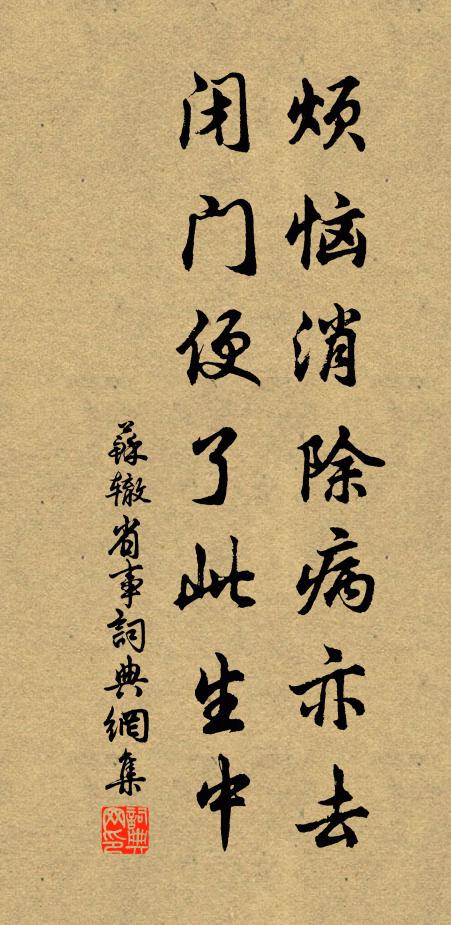 烦恼消除病亦去
闭门便了此生中
蘇辙省事詞典網集
詞典網印